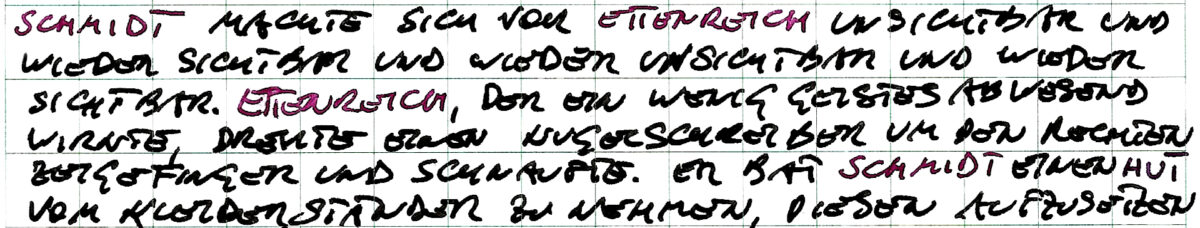 SCHMIDT MACHTE SICH VOR ETTENREICH UNSICHTBAR UND
WIEDER SICHTBAR UND WIEDER UNSICHTBAR UND WIEDER
SICHTBAR. ETTENREICH, DER EIN WENIG GEISTESABWESEND
WIRKTE, DREHTE EINEN KUGELSCHREIBER UM DEN RECHTEN
ZEIGEFINGER UND SCHNAUFTE. ER BAT SCHMIDT EINEN HUT
VOM KLEIDERSTÄNDER ZU NEHMEN, DIESEN AUFZUSETZEN